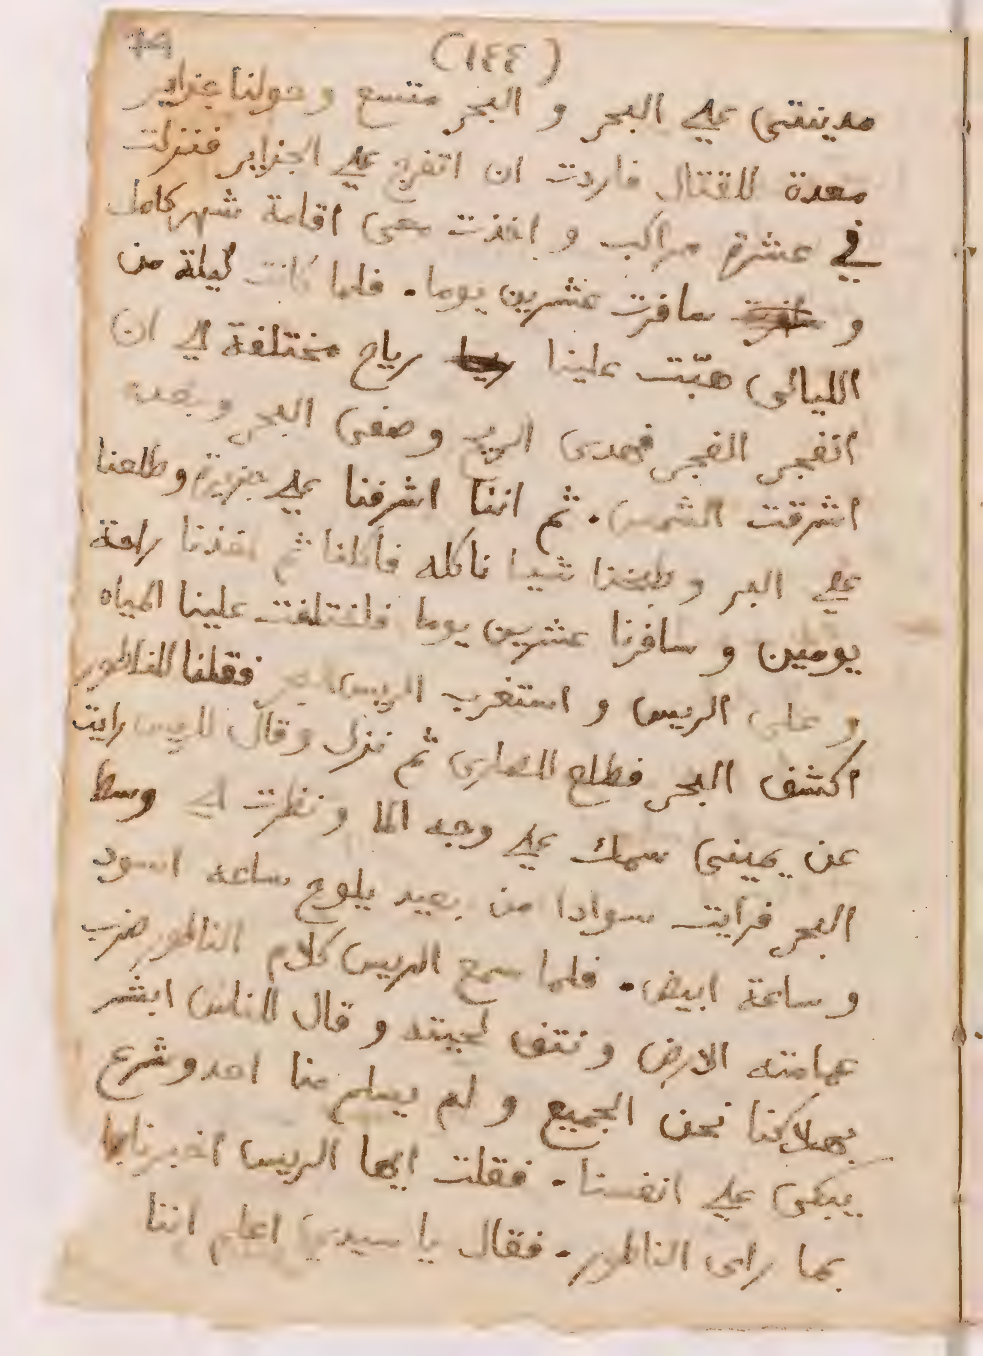 (١٤٤)
مدينتى على البحر و البحر متسع و حولنا جزاير
معدة للقتال فاردت ان اتفرج على الجزاير فنزلت
في عشرة مراكب و اخذت معى اقامة شهر كامل
و سافرت عشرين يوما. فلما كانت ليلة من
الليالى هبّت علينا رياح مختلفة الى ان
انفجر الفجر فهدى الريح وصفى البحر وبعده
اشرقت الشمس. ثم اننا اشرفنا على جزيرة وطلعنا
على البر وطبخنا شيا ناكله فأكلنا ثم اخذنا راحة
يومين و سافرنا عشرين يوما فاختلفت علينا المياه
و على الريس و استغرب الريس البحر فقلنا للناطور
اكشف البحر فطلع للصارى ثم نزل وقال للريس رايت
عن يمينى سمك على وجه الما ونظرت الى وسط
البحر فرايت سوادا من بعيد يلوح ساعه اسود
و ساعة ابيض. فلما سمع الريس كلام الناطور ضرب
عمامته الارض ونتف لحيته و قال للناس ابشر
بهلاكنا نحن الجميع و لم يسلم منا احد وشرع
يبكى على انفسنا. فقلت ايها الريس اخبرنا
بما راى الناطور. فقال يا سيدي اعلم اننا